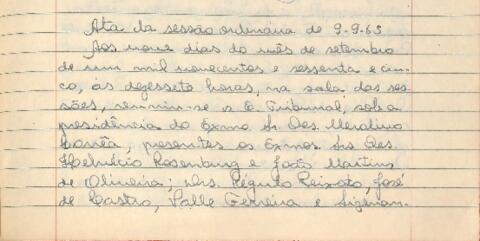 Ata da sessão ordinária de 9-9-65
Aos nove dias do mês de setembro
de um mil novecentos e sessenta e cin-
co, às dezessete horas, na sala das ses-
sões, reuniu-se o E. Tribunal, sob a
presidência do Exmo Sr. Des. Merolino
Corrêa, presentes os Exmos Srs Des.
Helvécio Rosenburg e João Martins
de Oliveira; drs. Régulo Peixoto, José
de Castro, Valle Ferreira e